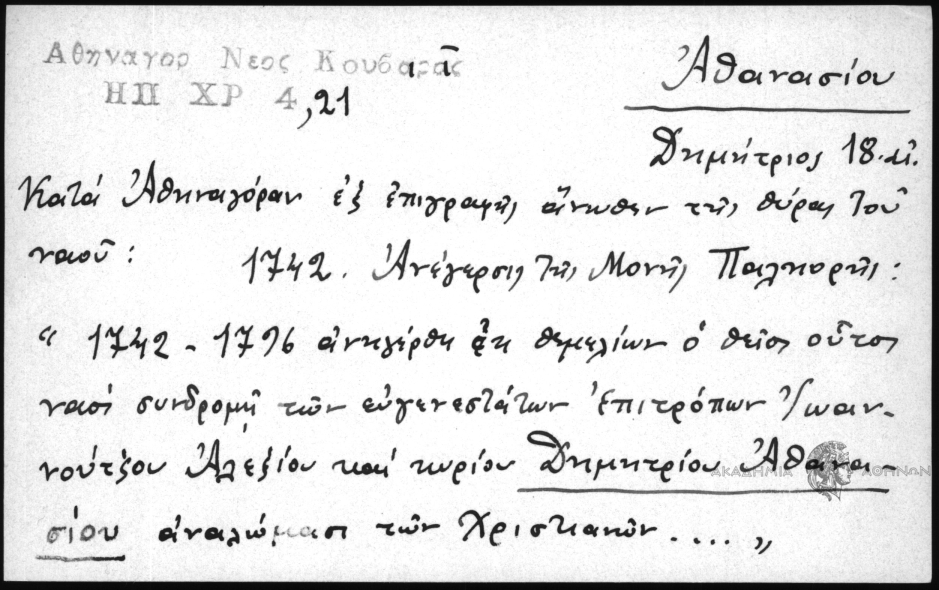 Αθηναγορ Νεος Κουβαρᾶς
ΗΠ ΧΡ 4,21
Ἀθανασίου
Δημήτριος 18. αἰ.
Κατά Ἀθηναγόραν ἐξ ἐπιγραφῆς ἄνωθεν τῆς θύρας τοῦ
ναοῦ: 1742. Ἀνέγερσις τῆς Μονῆς Παλιουρῆς:
“ 1742 - 1796 ἀνηγέρθη ἐκ θεμελίων ὁ θεῖος οὗτος
ναός συνδρομῇ τῶν εὐγενεστάτων Ἐπιτρόπων Ἰωαν-
νούτζου Ἀλεξίου καί κυρίου Δημητρίου Ἀθανα-
σίου ἀναλώμασι τῶν Χριστιανῶν .... „
ΑΚΑΔΗΜΙΑ ΑΘΗΝΩΝ